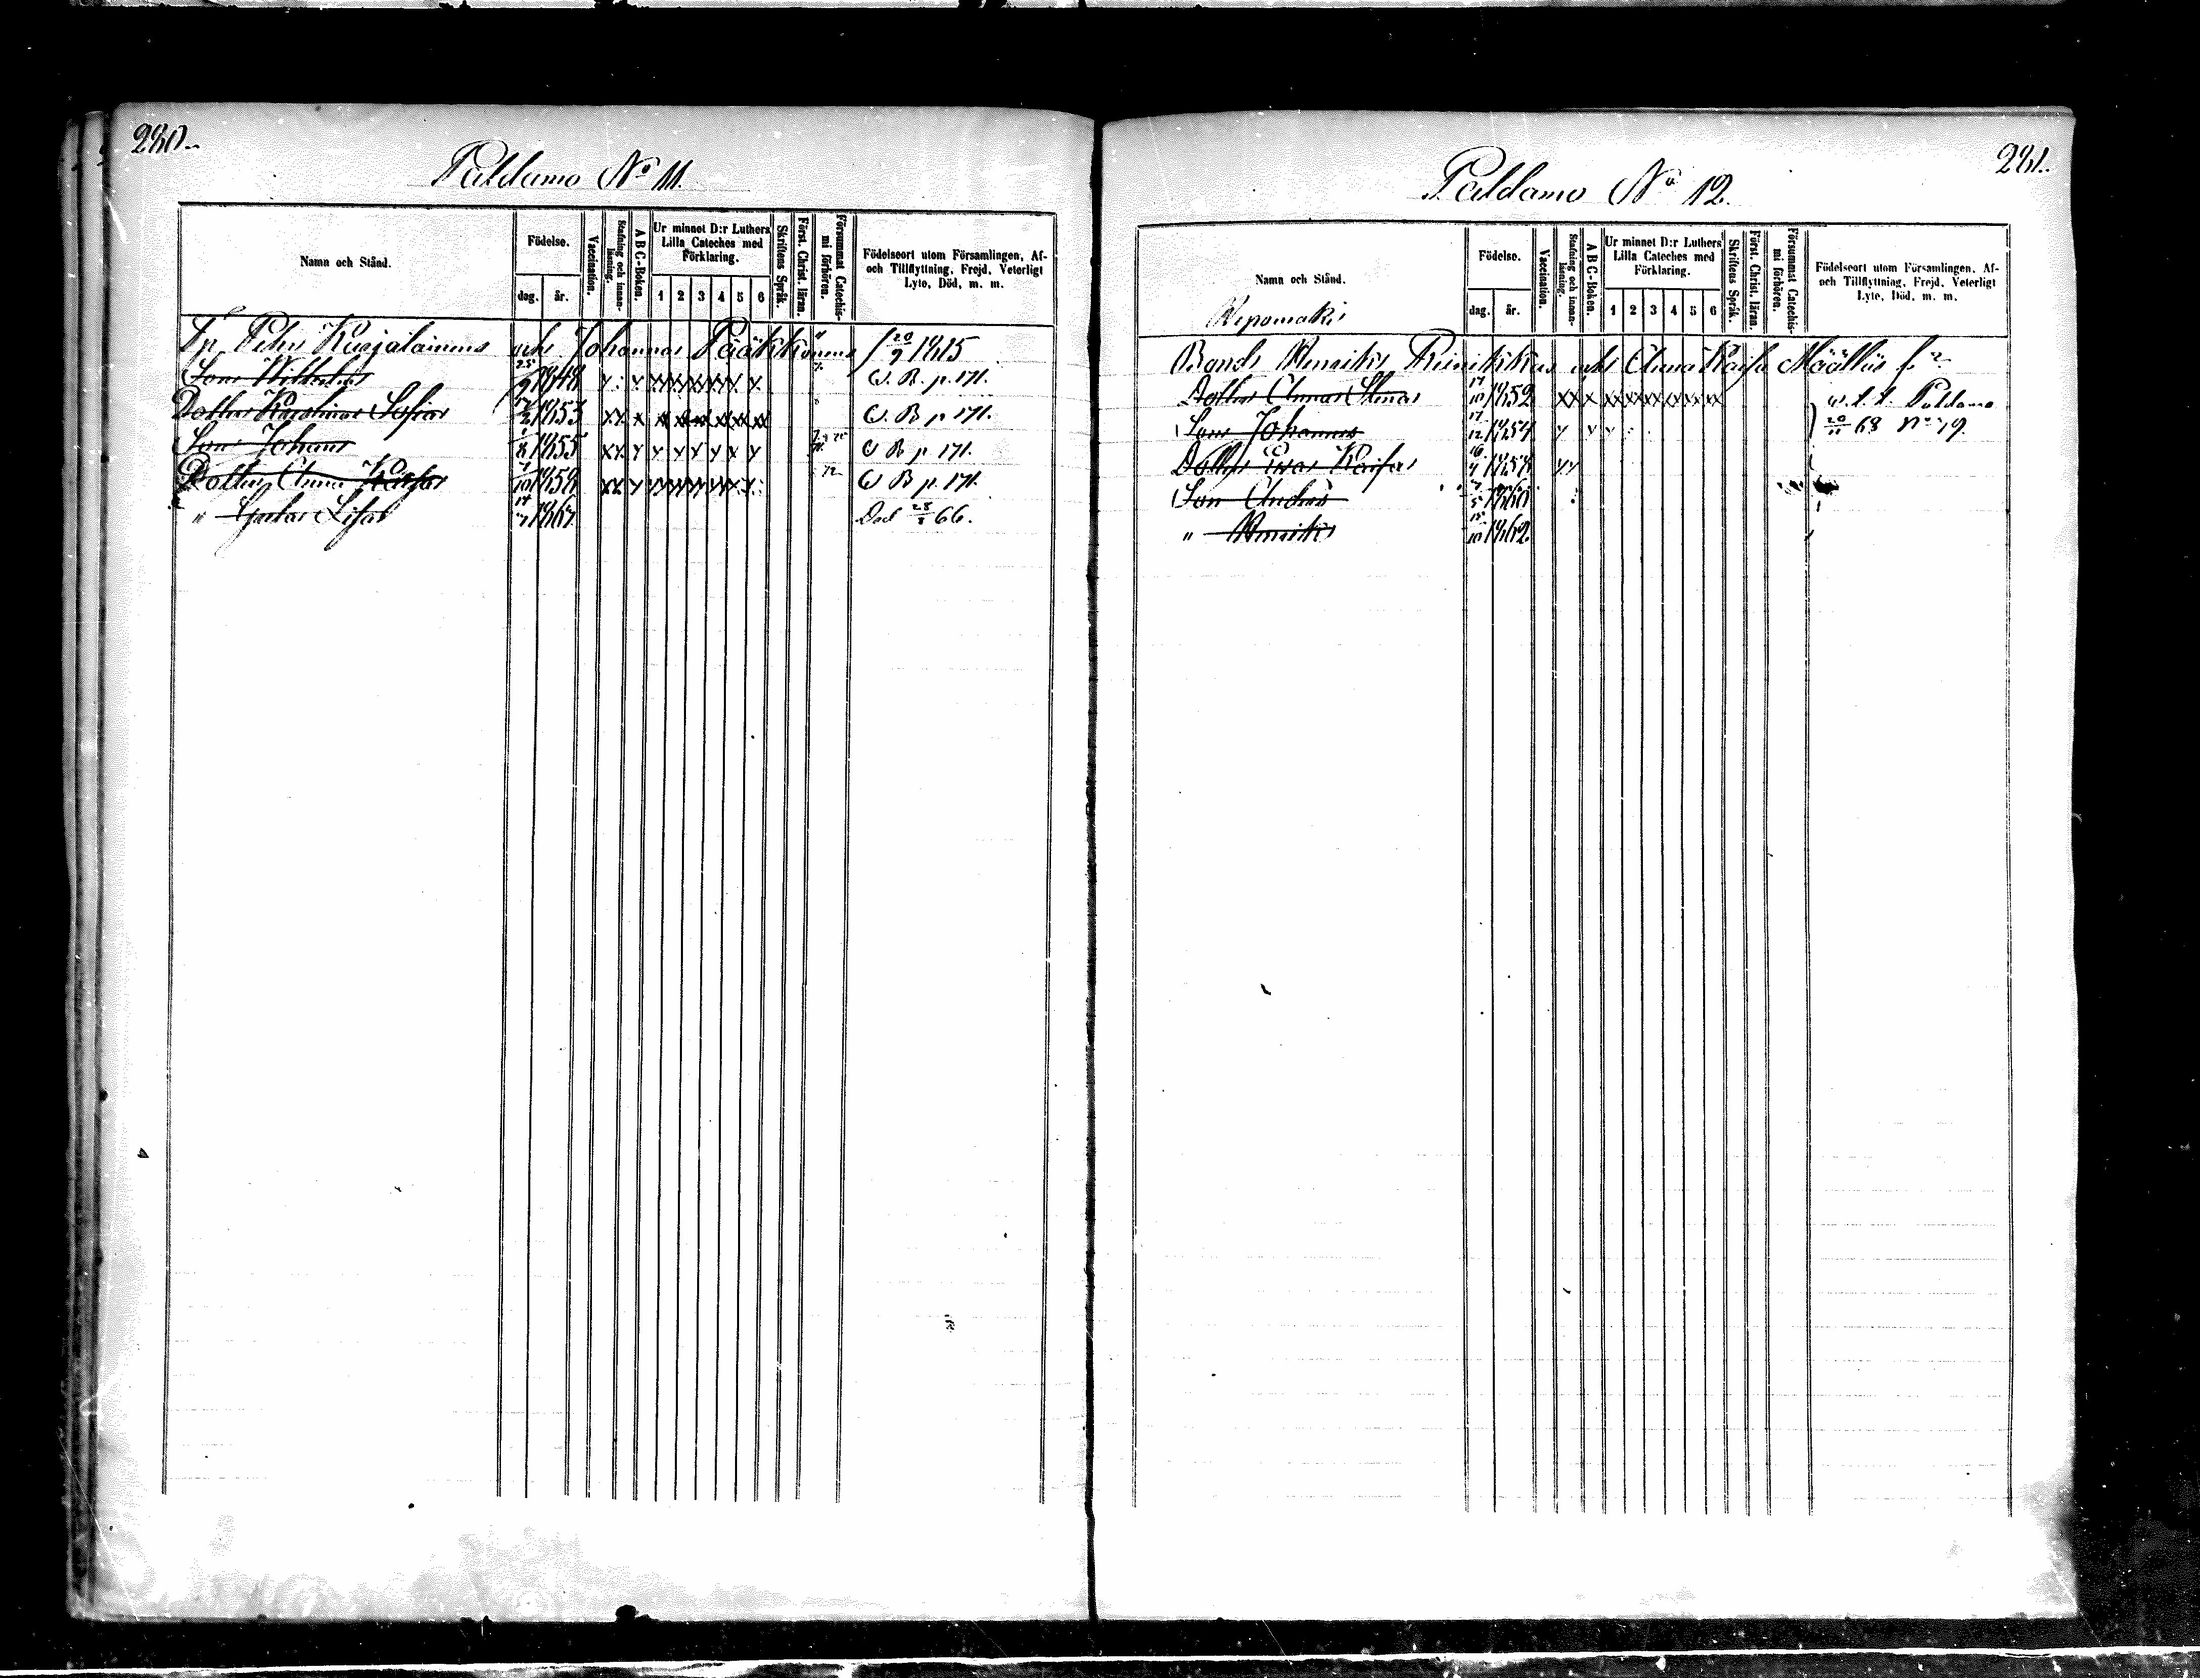 280.
Paldamo No 11.
Namn och Stånd.
Födelse.
dag. år.
Vaccination.
Stafning och innanläsning.
A B C-Boken.
Ur minnet D:r Luthers Lilla Cateches med Förklaring.
1 2 3 4 5 6
Skriftens Språk.
Först. Christ. läran.
Försummat Catechismi förhören.
Födelseort utom Församlingen, Af- och Tillflyttning, Frejd, Veterligt Lyte, Död, m. m.
Petter Karjalainens och Johanna Pääkkönens f 20/9 1815
Son Wilhelm 25/9 1848 C. B. p. 171.
Dotter Karolina Sofia 1853 C. B p 171.
Son Johan 1855 C B p 171.
Dotter Anna Kaisa 1858 C B p. 171.
" Lisa Död 66.
281.
Paldamo No 12.
Namn och Stånd.
Repomäki
Födelse.
dag. år.
Vaccination.
Stafning och innanläsning.
A B C-Boken.
Ur minnet D:r Luthers Lilla Cateches med Förklaring.
1 2 3 4 5 6
Skriftens Språk.
Först. Christ. läran.
Försummat Catechismi förhören.
Födelseort utom Församlingen, Af- och Tillflyttning, Frejd, Veterligt Lyte, Död, m. m.
Bonds Henriks och Anna Kaisa
Dotter Anna Stina 17/10 1852 Paldamo
Son Johannes 17/12 1854 20/11 68 No 19.
Dotter Kaisa 16
Son Anders 1860
" Henrik 15/10 1862